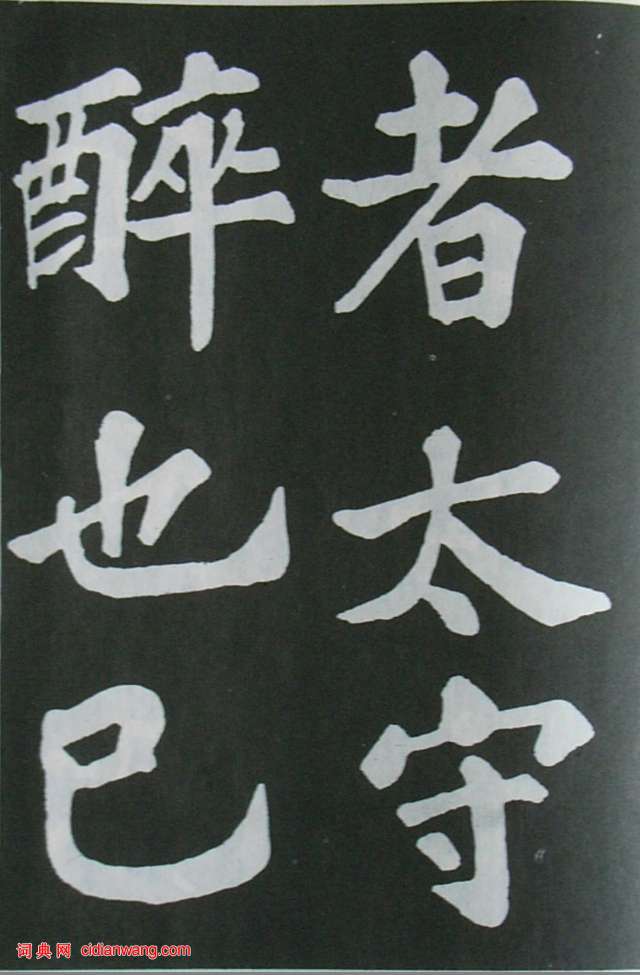 者太守
醉也巳
词典网 cidianwang.com